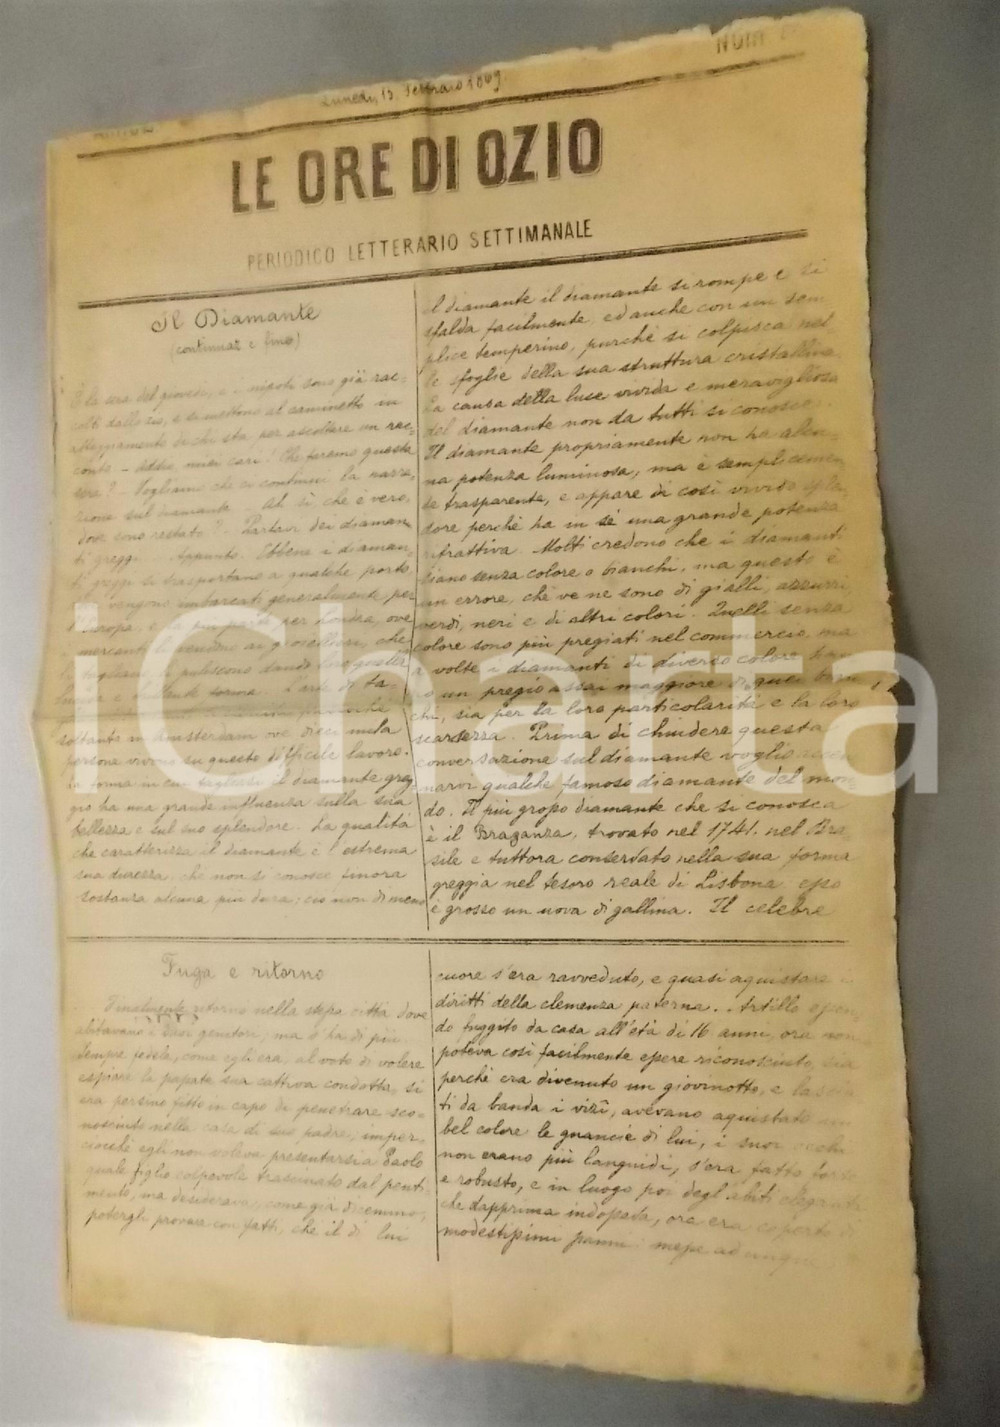 NUM
Lunedì, 15. Febbraio 1869.
LE ORE DI OZIO
PERIODICO LETTERARIO SETTIMANALE
Il Diamante
(continuaz e fine)
È la sera del giovedì, e i nipoti sono già rac-
colti dallo zio, e si mettono al caminetto in
atteggiamento di chi sta per ascoltare un rac-
conto - miei cari! Che faremo questa
sera? - Vogliamo che ci continui la narra-
zione sul diamante Ah sì che è vero.
dove sono restato? - Parlavi dei diaman
ti greggi. Appunto. Ebbene i diaman-
ti greggi si trasportano a qualche porto,
vengono imbarcati generalmente per
l'Europa, e la più parte per Londra, ove
mercanti li vendono ai gioiellieri, che
li tagliano, li puliscono dando loro quella
forma. L'arte di ta
soltanto in Amsterdam ove dieci mila
persone vivono su questo difficile lavoro.
la forma in cui tagliasi il diamante greg-
gio ha una grande influenza sulla sua
bellezza e sul suo splendore. La qualità
che caratterizza il diamante è l'estrema
sua durezza, che non si conosce finora
sostanza alcuna più dura; ciò non di meno
il diamante il diamante si rompe e si
sfalda facilmente, ed anche con un sem
plice temperino, purchè si colpisca nel
le sfoglie della sua struttura cristallina
La causa della luse vivida e meravigliosa
del diamante non da tutti si conosce.
Il diamante propriamente non ha alcu-
na potenza luminosa, ma è semplicemen
te trasparente, e appare di così vivido splen
dore perchè ha in sè una grande potenza
rifrattiva. Molti credono che i diamanti
siano senza colore o bianchi, ma questo è
un errore, chè ve ne sono di gialli, azzurri,
verdi, neri e di altri colori. Quelli senza
colore sono più pregiati nel commercio, ma
a volte i diamanti di diverso colore han
no un pregio assai maggiore di quei bian
chi, sia per la loro particolarità e la loro
scarsezza. Prima di chiudere questa
conversazione sul diamante voglio accen
narvi qualche famoso diamante del mon
do. Il più grosso diamante che si conosca
è il Braganza, trovato nel 1741. nel Bra
sile e tuttora conservato nella sua forma
greggia nel tesoro reale di Lisbona: esso
è grosso un uova di gallina. Il celebre
Fuga e ritorno
Finalmente ritorno nella stessa città dove
abitavano i suoi genitori, ma
sempre fedele, come egli era, al voto di volere
espiare la passata sua cattiva condotta, si
era persino fitto in capo di penetrare sco-
nosciuto nella casa di suo padre, imper-
ciocchè egli non voleva presentarsi a Paolo
quale figlio colpevole trascinato dal penti-
mento, ma desiderava, come già dicemmo,
potergli provare con fatti, che il di lui
cuore s'era ravveduto, e quasi aquistare i
diritti della clemenza paterna.. Artillo essen
do fuggito da casa all'età di 16 anni, ora non
poteva così facilmente essere riconosciuto, sia
perchè era divenuto un giovinotto, e lascia
ti da banda i vizî, avevano aquistato un
bel colore le guancie di lui, i suoi occhi
non erano più languidi, s'era fatto
e robusto, e in luogo poi degl'abiti eleganti
che dapprima indossava, ora era coperto di
modestissimi panni. messe adunque
iCharta